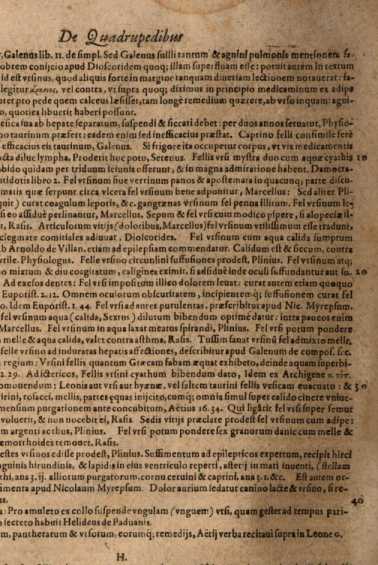 De Quadrupedibus
Galenus lib. 11. de simpl. Sed Galenus suilli tantum & agnini pulmonis mentionem fa-
obrem conijcio apud Dioscoridem quoq; illam superfluam esse: potuit autem in textum
id est vrsinus, quod aliquis forte in margine tanquam diuersam lectionem notauerat: fa-
legitur vel contra, vt supra quoq; diximus in principio medicaminum ex adipe
ter pro pede quem calceus læsisset, tam longe remedium quærere, ab vrso inquam: agni-
o, quoties liburit haberi possunt.
ca sua ab hepate separatum, suspendi & siccari debet: per duos annos seruatur, Physio-
no taurinum præfert: eadem enim sed inefficacius præstat. Caprino felli consimile feré
efficacius eis taurinum, Galenus. Si frigore ita occupetur corpus, vt vix medicamentis
cta dilue lympha. Proderit hoc poto, Serenus. Fellis vrsi mystra duo cum aquæ cyathis 10
bido quidam per triduum ieiunis offerunt, & in magna admiratione habent. Damocra-
ntidotis libro 2. Fel vrsinum siue verrinum panos & apostemata in quacunq; parte discu-
mata quæ serpunt circa viscera fel vrsinum bene adponitur, Marcellus: Sed aliter Pli-
quit) curat coagulum leporis, &c. gangrænas vrsinum fel penna illitum. Fel vrsinum le-
si eo assidué perlinantur, Marcellus. Sepum & fel vrsi cum modico pipere, si alopeciæ il-
r, Rasis. Articulorum vitijs (doloribus, Marcellus) fel vrsinum vtilissimum esse tradunt,
eclegmate comitiales adiuuat, Dioscorides. Fel vrsinum cum aqua calida sumptum
b Arnoldo de Villan. etiam ad epilepsiam commendatur. Calidum est & siccum, contra
vtile. Physiologus. Felle vrsino circunlini suffusiones prodest, Plinius. Fel vrsinum atq;
o mixtum & diu coagitatum, caligines eximit, si assidué inde oculi suffundantur aut su. 20
Ad eacsos dentes: Fel vrsi impositum illico dolorem leuat: curat autem etiam quoquo
Euporist. 2. 12. Omnem oculorum obscuritatem, incipientemq; suffusionem curat fel
dem Euporist. 1. 44. Fel vrsi ad aures purulentas, præscribitur apud Nic. Myrepsum.
fel vrsinum aqua (calida, Sextus) dilutum bibendum optimé datur: intra paucos enim
Marcellus. Fel vrsinum in aqua laxat meatus spirandi, Plinius. Fel vrsi potum pondere
melle & aqua calida, valet contra asthma, Rasis. Tussim sanat vrsinū fel admixto melle,
felle vrsino ad induratas hepatis affectiones, describitur apud Galenum de compos. sec.
regium: Vrsini fellis quantum Græcam fabam æquat exhibeto, deinde aquam superbi-
2. 29. Ad ictericos, Fellis vrsini cyathum bibendum dato, Idem ex Archigene
omouendum: Leonis aut vrsi aut hyænæ, vel saltem taurini fellis vesicam euacuato: & 30
irini, rosacei, mellis, partes equas inijcito, cumq; omnia simul super calido cinere vniue-
mensium purgationem ante concubitum, Aëtius 16.34. Qui ligarit fel vrsi super femur
voluerit, & non nocebit ei, Rasis. Sedis vitijs præclare prodest fel vrsinum cum adipe:
m argenti ocibus, Plinius. Fel vrsi potum pondere sex granorum danic cum melle &
æmorrhoides remouet, Rasis.
estes vrsinos edisse prodest, Plinius. Suffimentum ad epilepticos expertum, recipit hirci
anguinis hirundinis, & lapidis in eius ventriculo reperti, asterij in mati inuenti, (stellam
thi, ana 3. ij. alliorum purgatorum, cornu ceruini & caprini, ana 3. 1. &c. Est autem or-
dimenta apud Nicolaum Myrepsum. Dolor aurium sedatur canino lacte & vrsino, si re-
us. 40
a: Pro amuleto ex collo suspende vngulam (vnguem) vrsi, quam gestet ad tempus pari-
o secreto habuit Helideus de Paduanis.
m, pantherarum & vrsorum, eorumq; remedijs, Aëtij verba recitaui supra in Leone o.
H.